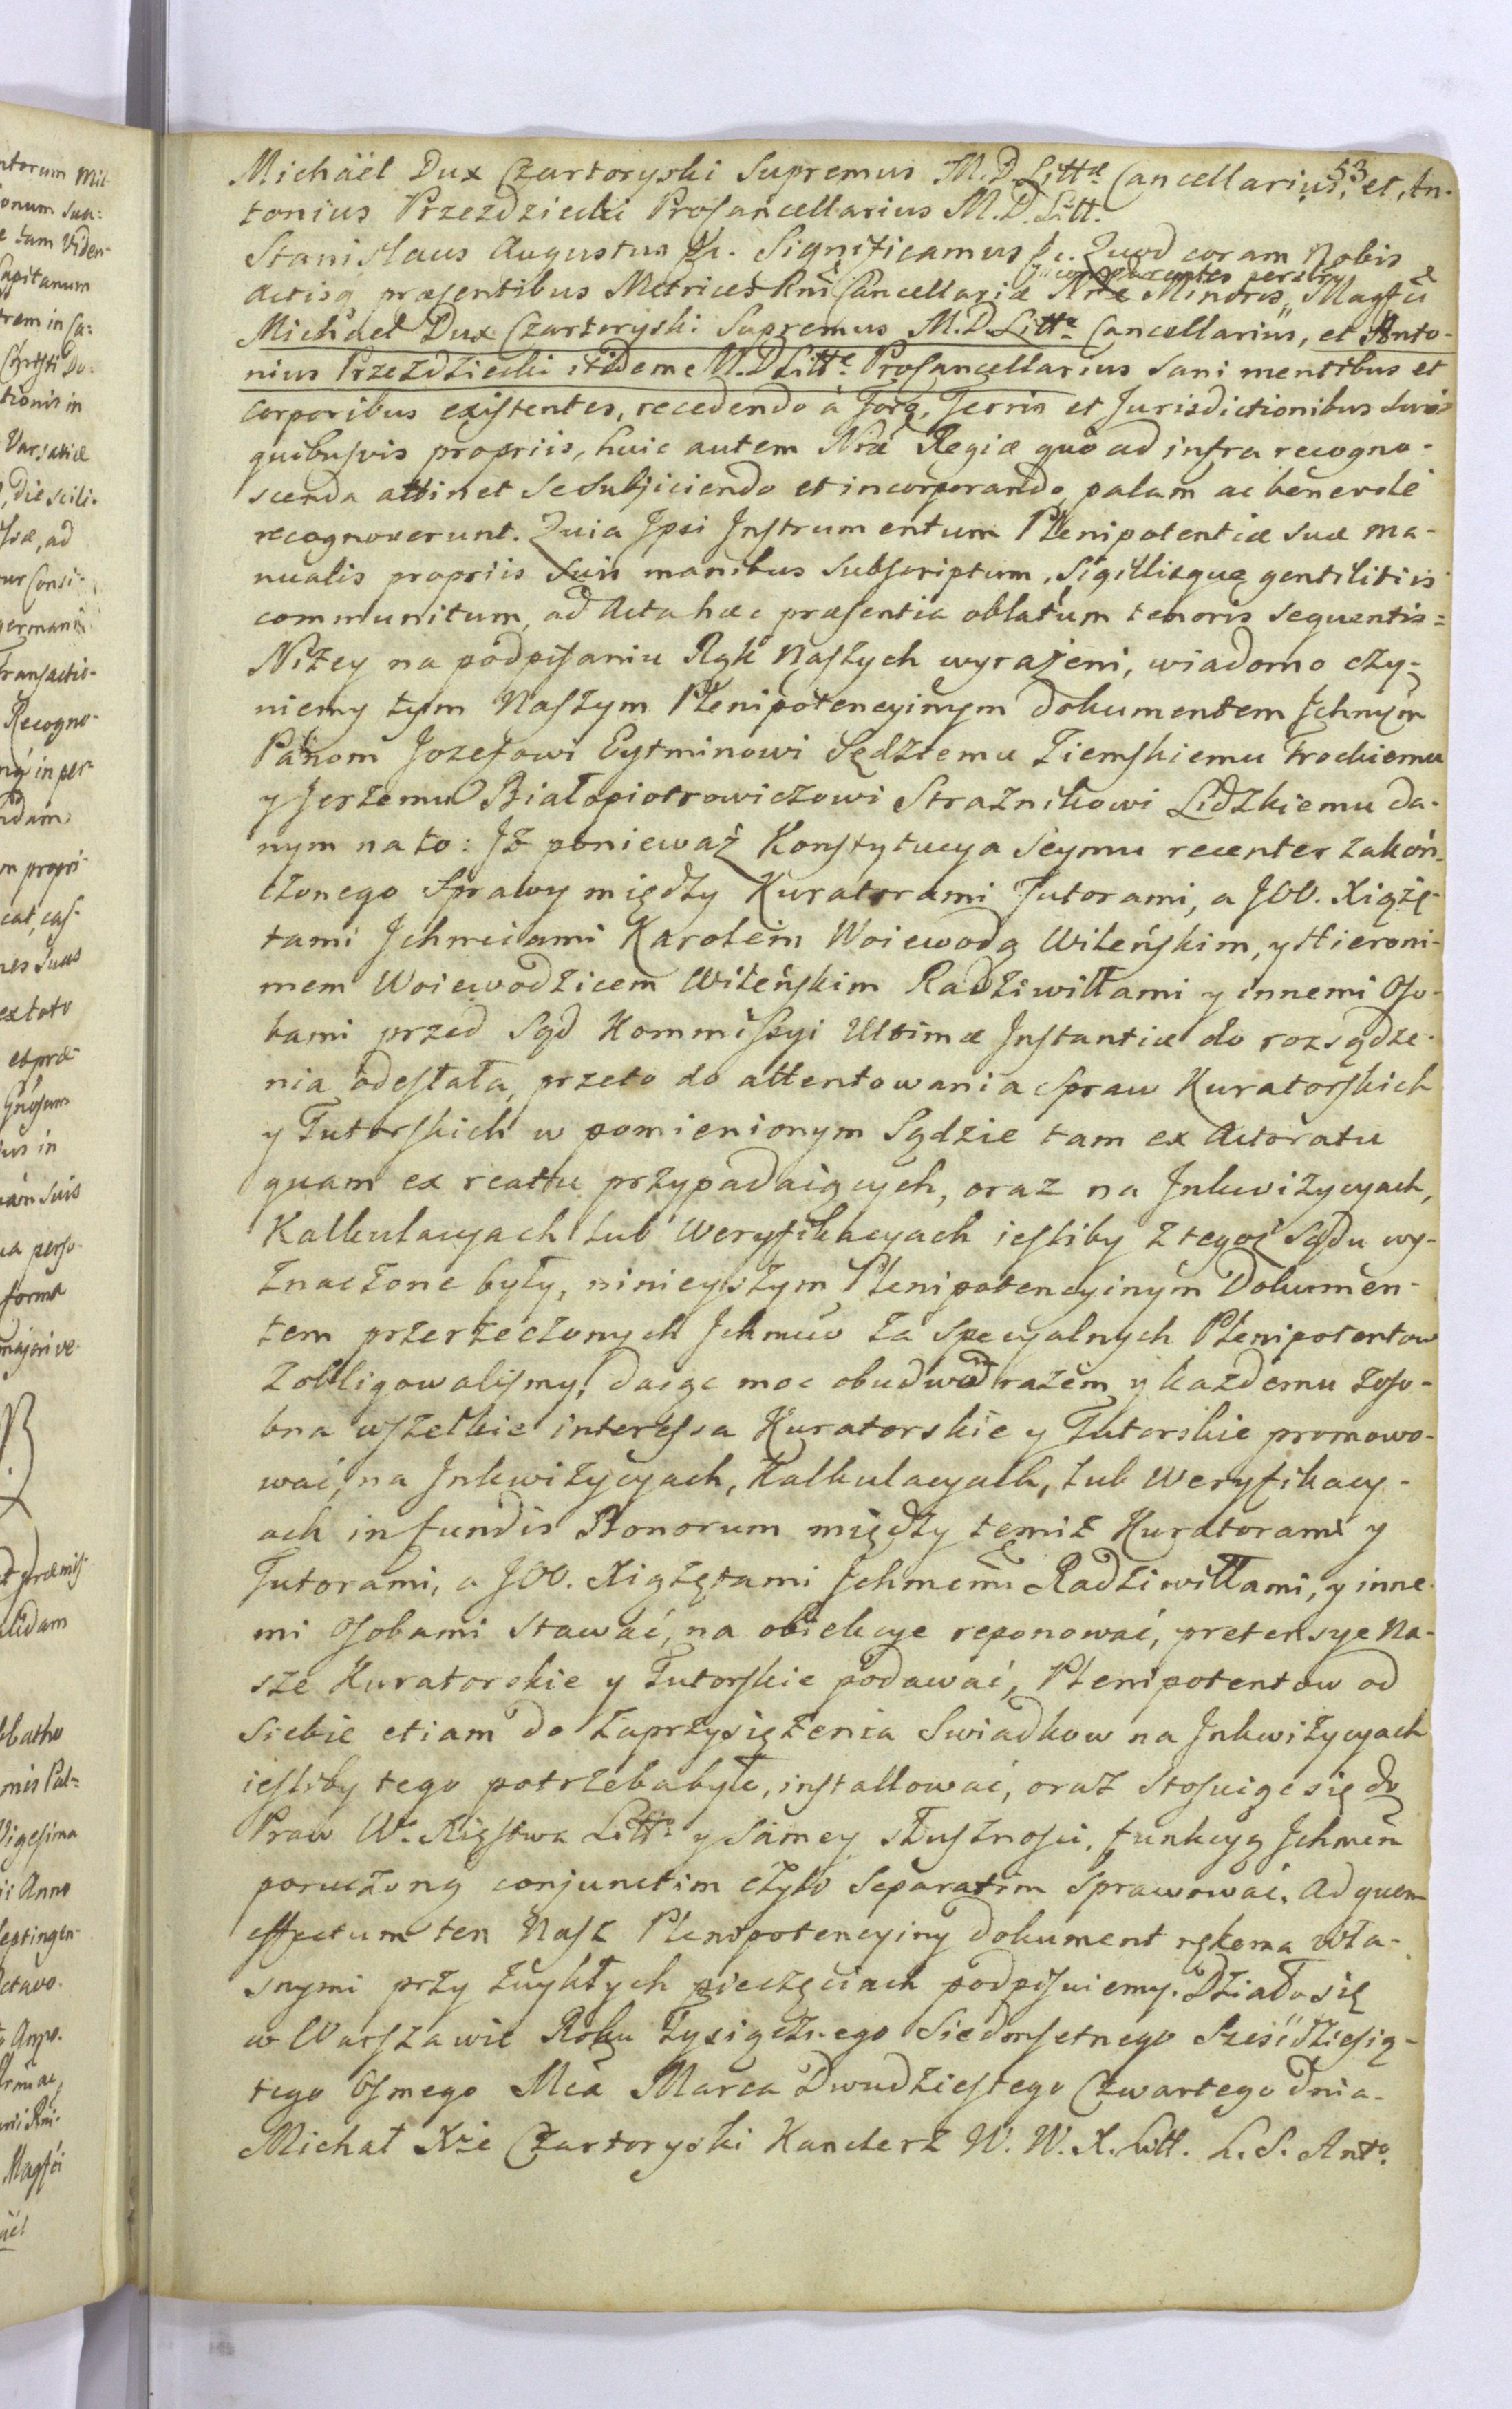 53
Michäel Dux Czartoryski Supremus M. D. Littæ Cancellarius, et An-
tonius Przezdziecki ProCancellarius M. D. Litt.
Stanislaus Augustus &c. Significamus &c. Quod coram Nobis
Actisq præsentibus Metrices Rni Cancellariæ Nræ Minoris, comparentes personlr Magfci
Michäel Dux Czartoryski Supremus M. D. Littæ Cancellarius, et Anto-
nius Przezdziecki itidem M. D Litte ProCancellarius Sani mentibus et
corporibus existentes, recedendo à Foro, Terris et Jurisdictionibus suis
quibusvis propriis, huic autem Nræ Regiæ quo ad infra recogno-
scenda attinet se subjiciendo et incorporando, palam ac benevole
recognoverunt. Quia Ipsi Instrumentum Plenipotentiæ suæ ma-
nualis propriis suis manibus subscriptum, Sigillisque gentilitiis
communitum, ad Acta hæc præsentia oblatum tenoris sequentis =
Niżey na podpisaniu Rąk Naszych wyrażeni, wiadomo czy-
niemy tym Naszym Plenipotencyinym Dokumentem Ichmm
Panom Jozefowi Eytminowi Sędziemu Ziemskiemu Trockiemu
y Jerzemu Białopiotrowiczowi Straznikowi Lidzkiemu da-
nym na to: Iż ponieważ Konstytucya Seymu recenter zakoń-
czonego Sprawy między Kuratorami Tutorami, a JOO. Xiążę-
tami Ichmciami Karolem Woiewodą Wileńskim, y Hieroni-
mem Woiewodzicem Wileńskim Radziwiłłami y innemi Oso-
bami przed Sąd Kommissyi Ultimæ Instantiæ do rozsądze-
nia odesłała, przeto do attentowania Spraw Kuratorskich
y Tutorskich w pomienionym Sądzie tam ex Actoratu
quam ex reatu przypadaiących, oraz na Inkwizycyach,
Kalkulacyach lub Weryfikacyach iesliby z tegoż Sądu wy-
znaczone były, ninieyszym Plenipotencyinym Dokumen-
tem przerzeczonych Ichmciow za specyalnych Plenipotentow
zobligowalismy, daiąc moc obudwom razem y każdemu zoso-
bna wszelkie interessa Kuratorskie y Tutorskie promowo-
wać, na Inkwizycyach, Kalkulacyach, lub Weryfikacy-
ach in fundis Bonorum między temiż Kuratorami y
Tutorami, a JOO. Xiążętami Ichmciami Radziwiłłami, y inne-
mi Osobami stawać, na obiekcye reponować, pretensye Na-
sze Kuratorskie y Tutorskie podawać, Plenipotentow od
siebie etiam do zaprzysiężenia Swiadkow na Inkwizycyach
iesliby tego potrzeba była, installować, oraz stosuiąc się do
Praw W. Xięstwa Litto y samey słuszności, funkcyą Ichmciom
poruczoną conjunctim czyli separatim sprawować. Ad quem
effectum ten Nasz Plenipotencyiny Dokument rękoma wła-
snymi przy zwykłych pieczęciach podpisuiemy. Działo się
w Warszawie Roku Tysiącznego Siedmsetnego Sześćdziesią-
tego Osmego Mca Marca Dwudziestego Czwartego dnia.
Michał Xże Czartoryski Kanclerz W. W. X. Litt. L. S. Anto.